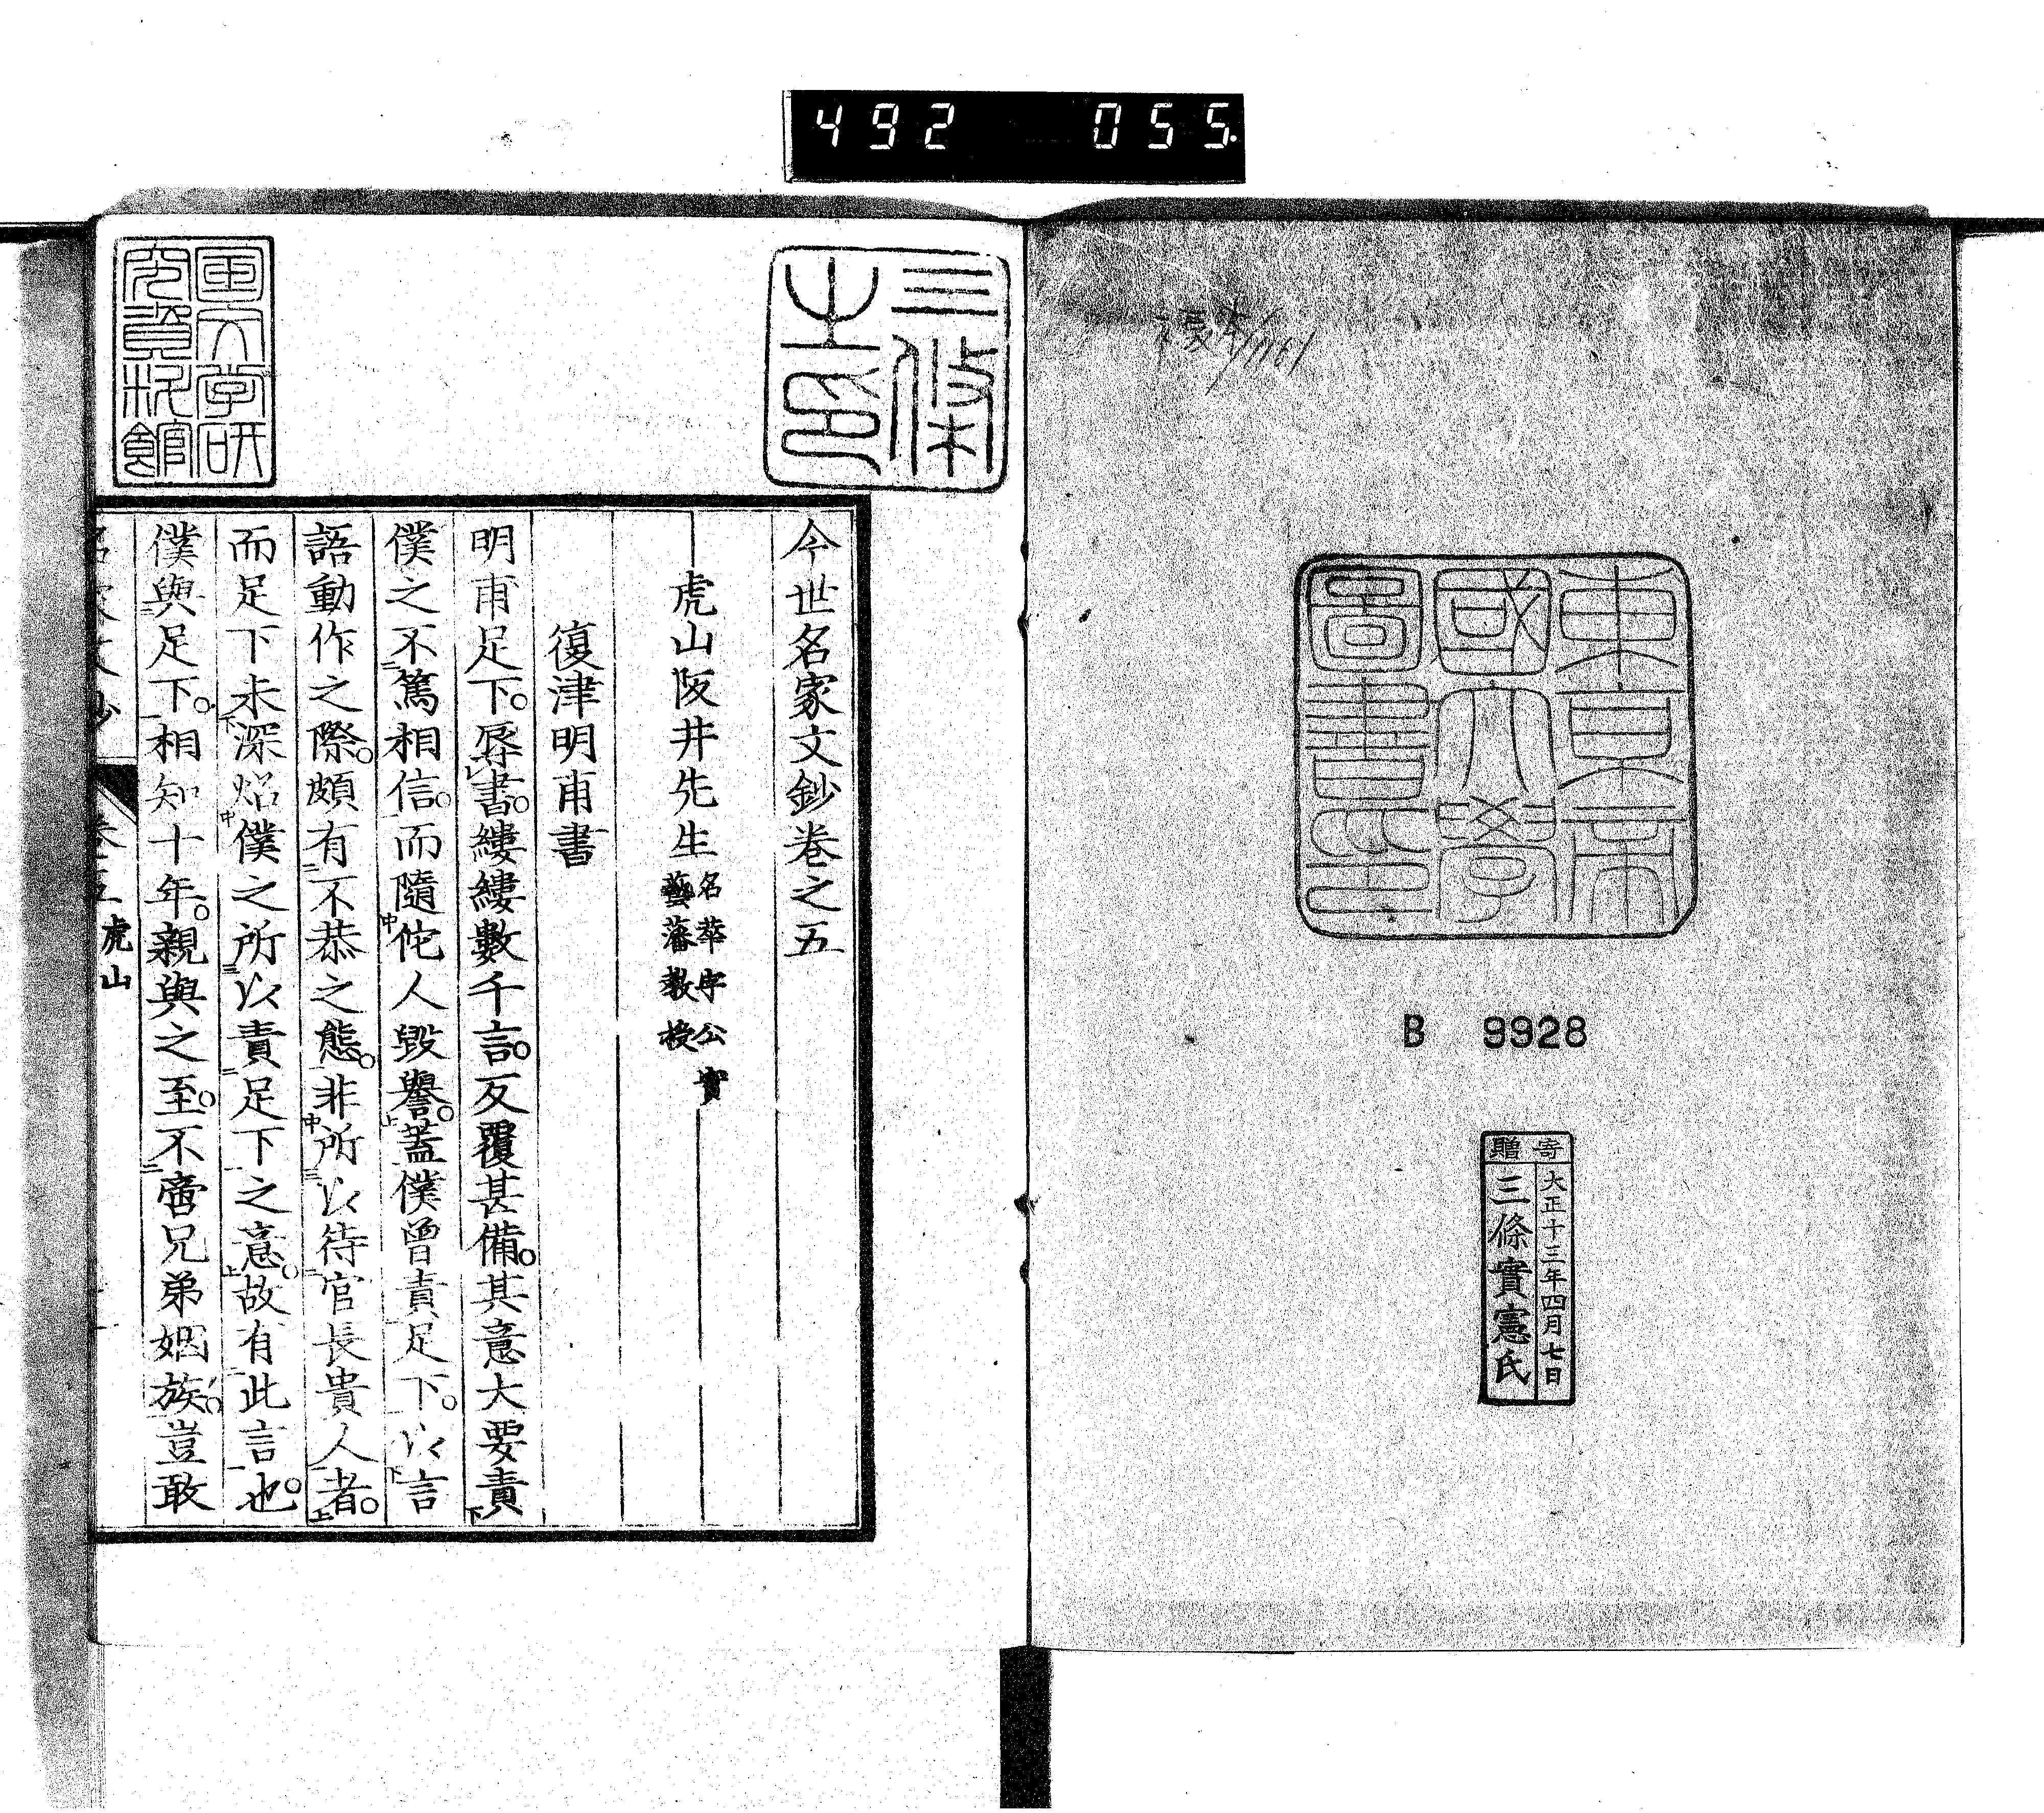 492 055.
東京帝
國大學
圖書之印
B 9928
寄贈
大正十三年四月七日
三條實憲氏
三條
之印
今世名家文鈔卷之五
虎山阪井先生 名華字公實
藝藩教授
復津明甫書
明甫足下。辱書。縷縷數千言。反覆甚備。其意大要責
僕之不篤相信。而隨佗人毀譽。蓋僕曾責足下。以言
語動作之際。頗有不恭之態。非所以待官長貴人者。
而足下未深炤僕之所以責足下之意。故有此言也。
僕與足下。相知十年。親與之至。不啻兄弟姻族。豈敢
名家文鈔 卷五 虎山
国文学研
究資料館